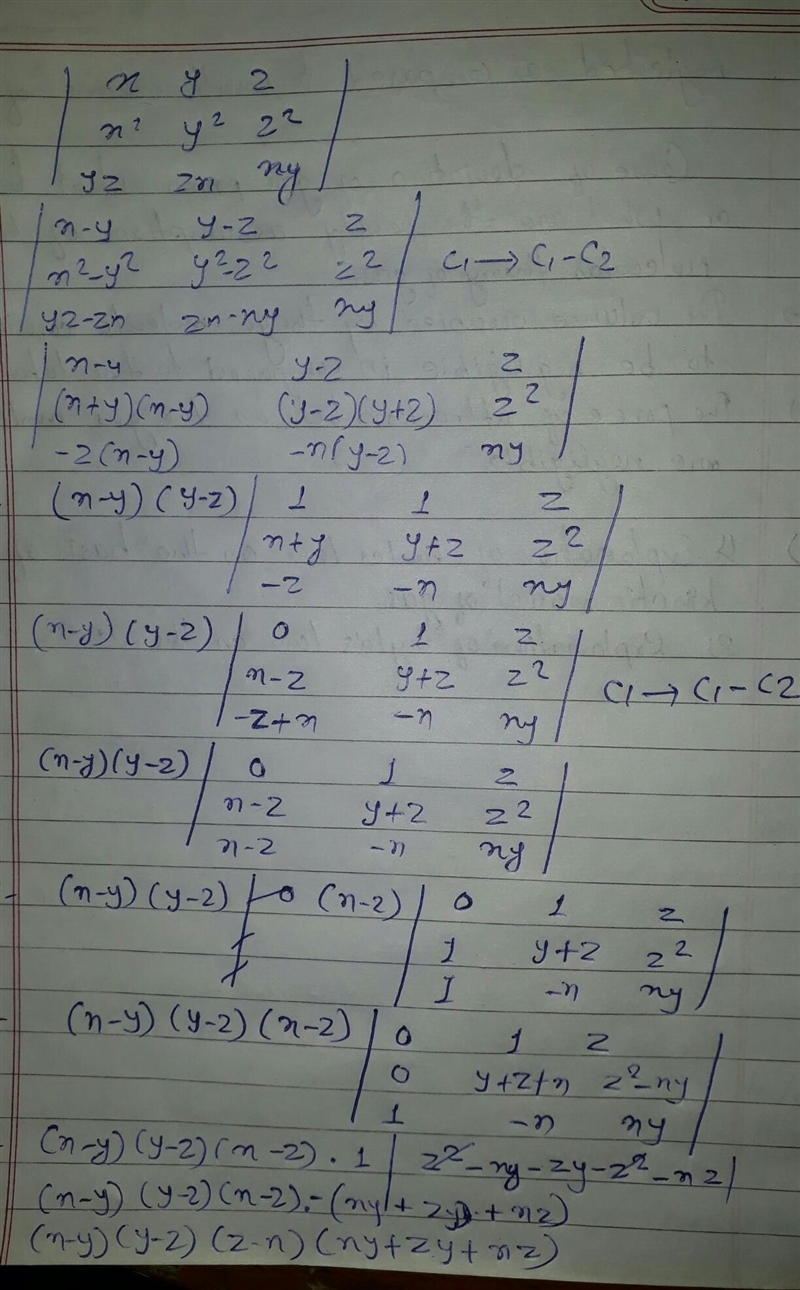 | x y z |
| x² y² z² |
| yz zx xy |
| x-y y-z z |
| x²-y² y²-z² z² | C₁ → C₁-C2
| yz-zx zx-xy xy |
| x-y y-z z |
| (x+y)(x-y) (y-z)(y+z) z² |
| -z(x-y) -x(y-z) xy |
(x-y) (y-z) | 1 1 z |
| x+y y+z z² |
| -z -x xy |
(x-y) (y-z) | 0 1 z |
| x-z y+z z² | C₁ → C₁-C2
| -z+x -x xy |
(x-y)(y-z) | 0 1 z |
| x-z y+z z² |
| x-z -x xy |
(x-y) (y-z) | 0 (x-z) | 0 1 z |
| 1 y+z z² |
| 1 -x xy |
(x-y) (y-z) (x-z) | 0 1 z |
| 0 y+z+x z²-xy |
| 1 -x xy |
(x-y) (y-z) (x-z) . 1 | z²-xy-zy-z²-xz |
(x-y) (y-z) (x-z).-(xy+zy+xz)
(x-y) (y-z) (z-x) (xy+zy+xz)